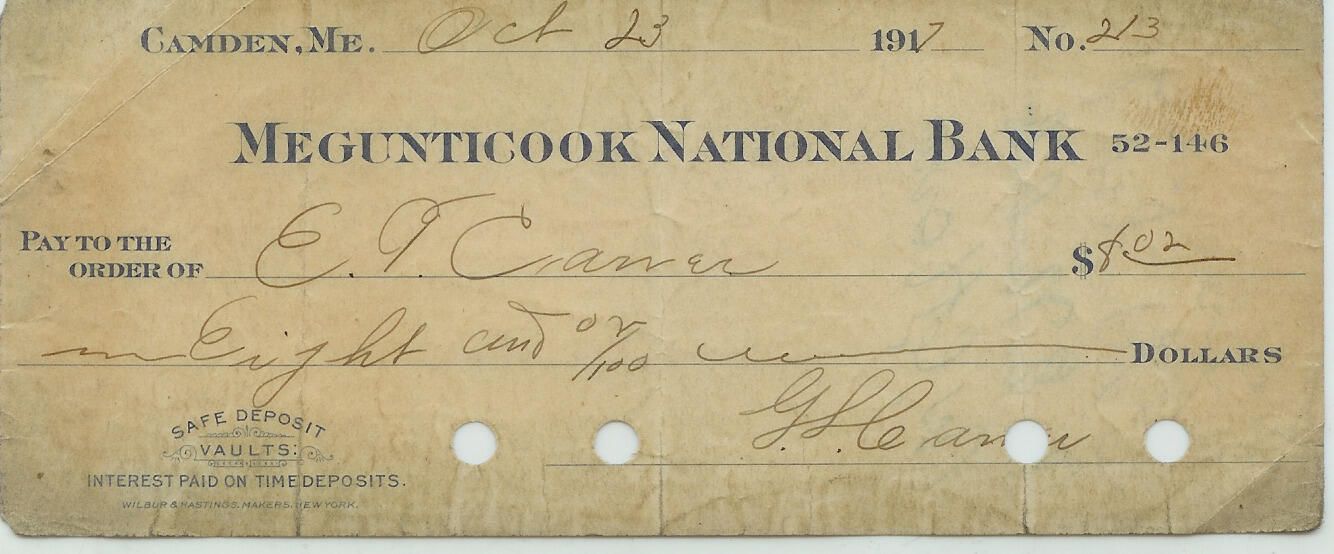 CAMDEN, ME. Oct 23 1917 No. 213
MEGUNTICOOK NATIONAL BANK 52-146
PAY TO THE
ORDER OF E. T. $8.02
Eight and 02/100 DOLLARS
SAFE DEPOSIT
VAULTS.
INTEREST PAID ON TIME DEPOSITS.
WILBUR & HASTINGS, MAKERS, NEW YORK.